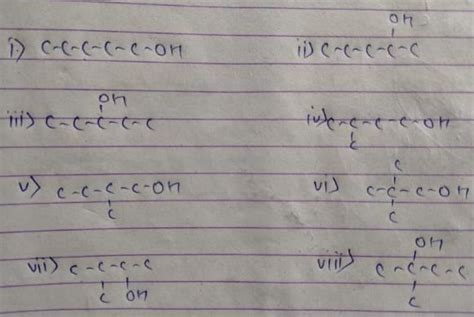 OH
i) C-C-C-C-C-OH ii) C-C-C-C-C
OH
iii) C-C-C-C-C iv) C-C-C-C-OH
C
C
v) C-C-C-C-OH vi) C-C-C-OH
C C
OH
vii) C-C-C-C viii) C-C-C-C
C OH C